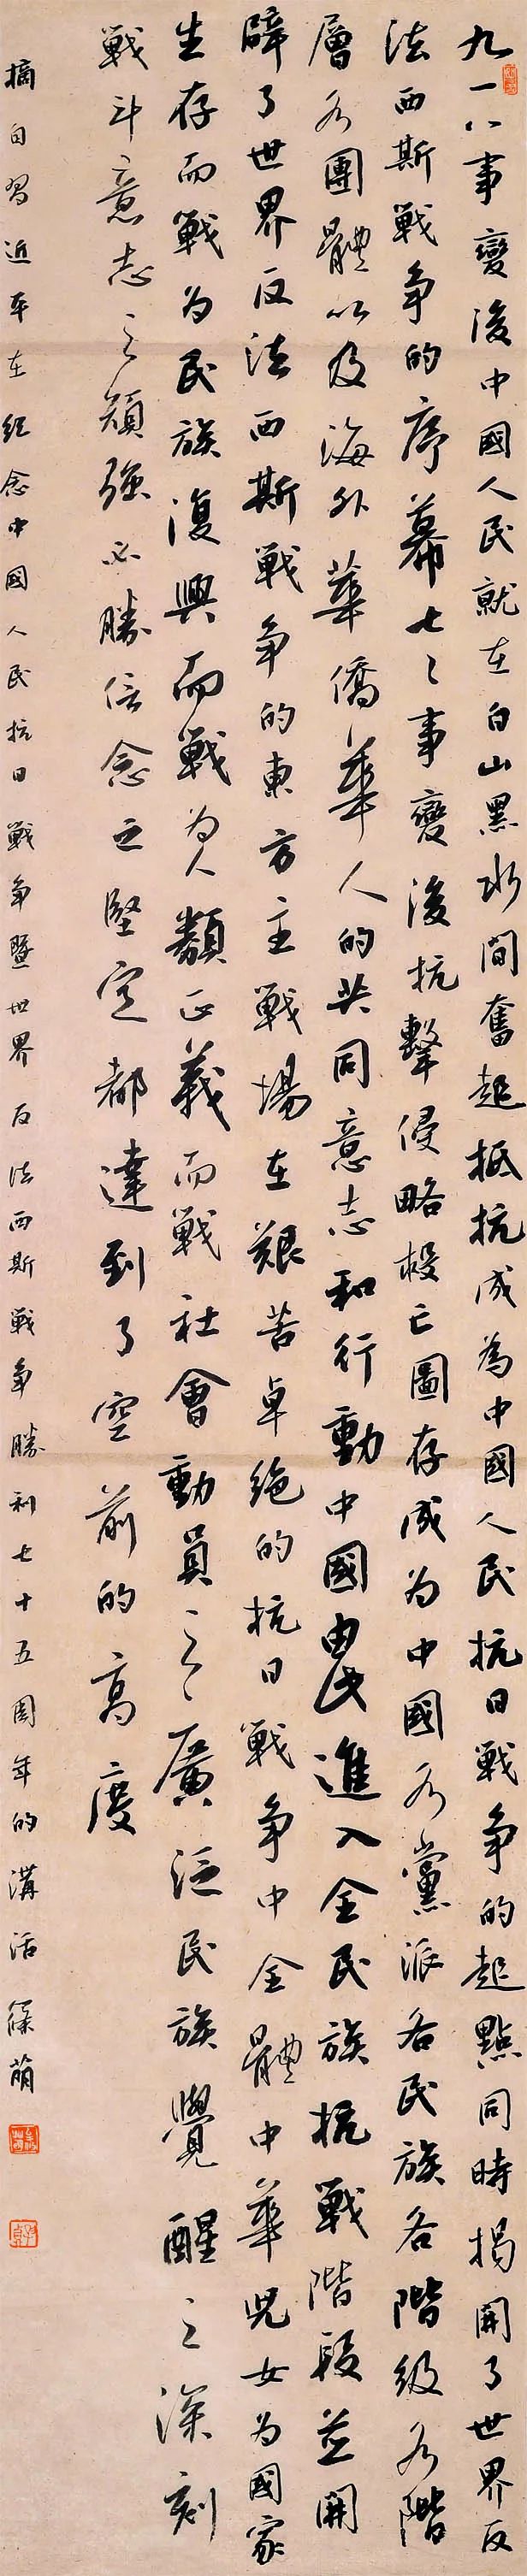 九一八事變後中國人民就在白山黑水間奮起抵抗成為中國人民抗日戰争的起點同時揭開了世界反
法西斯戰争的序幕七七事變後抗擊侵略救亡圖存成为中國各黨派各民族各階级各階
層各團體以及海外華僑華人的共同意志和行動中國由此進入全民族抗戰階段並開
辟了世界反法西斯戰争的東方主戰場在艱苦卓绝的抗日戰争中全體中華兒女为國家
生存而戰为民族復興而戰为人類正義而戰社會動員之廣泛民族覺醒之深刻
戰斗意志之頑强必勝信念之堅定都達到了空前的高度
摘自習近平在纪念中國人民抗日戰争暨世界反法西斯戰争勝利七十五周年的講話 篠萌